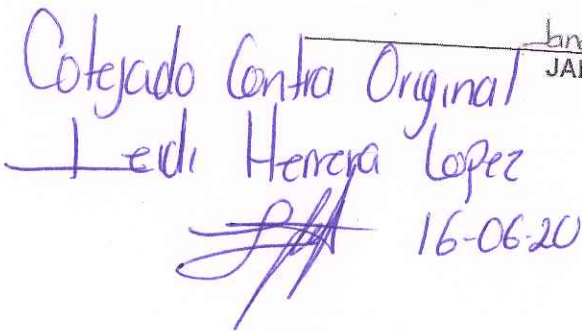 Cotejado Contra Original
Leidi Herrera Lopez
16-06-20